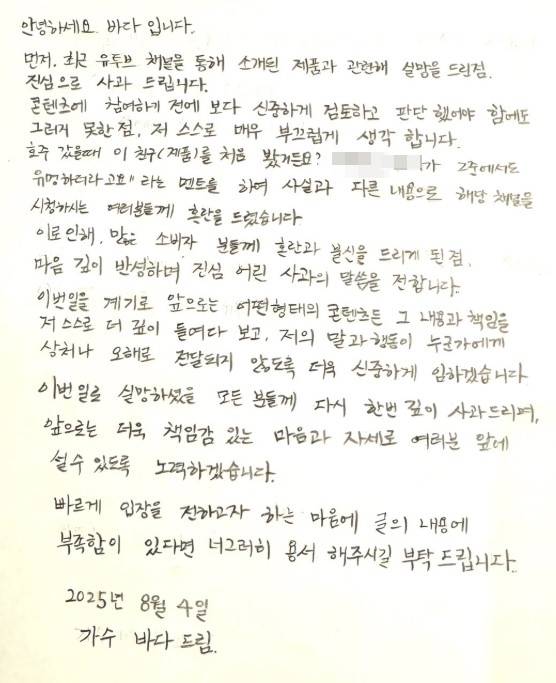 안녕하세요. 바다 입니다.
먼저, 최근 유투브 채널을 통해 소개된 제품과 관련해 실망을 드린점.
진심으로 사과 드립니다.
콘텐츠에 참여하기 전에 보다 신중하게 검토하고 판단 했어야 함에도
그러지 못한 점, 저 스스로 매우 부끄럽게 생각 합니다.
호주 갔을때 이 친구(제품)를 처음 봤거든요? 가 그중에서도
유명하더라고요" 라는 멘트를 하여 사실과 다른 내용으로 해당 채널을
시청하시는 여러분들께 혼란을 드렸습니다
이로 인해, 많은 소비자 분들께 혼란과 불신을 드리게 된 점.
마음 깊이 반성하며 진심 어린 사과의 말씀을 전합니다.
이번일을 계기로 앞으로는 어떤형태의 콘텐츠든 그 내용과 책임을
저 스스로 더 깊이 들여다 보고, 저의 말과 행동이 누군가에게
상처나 오해로 전달되지 않도록 더욱 신중하게 임하겠습니다
이번 일로 실망하셨을 모든 분들께 다시 한번 깊이 사과드리며,
앞으로는 더욱 책임감 있는 마음과 자세로 여러분 앞에
설 수 있도록 노력하겠습니다.
빠르게 입장을 전하고자 하는 마음에 글의 내용에
부족함이 있다면 너그러히 용서 해주시길 부탁 드립니다.
2025년 8월 4일
가수 바다 드림.